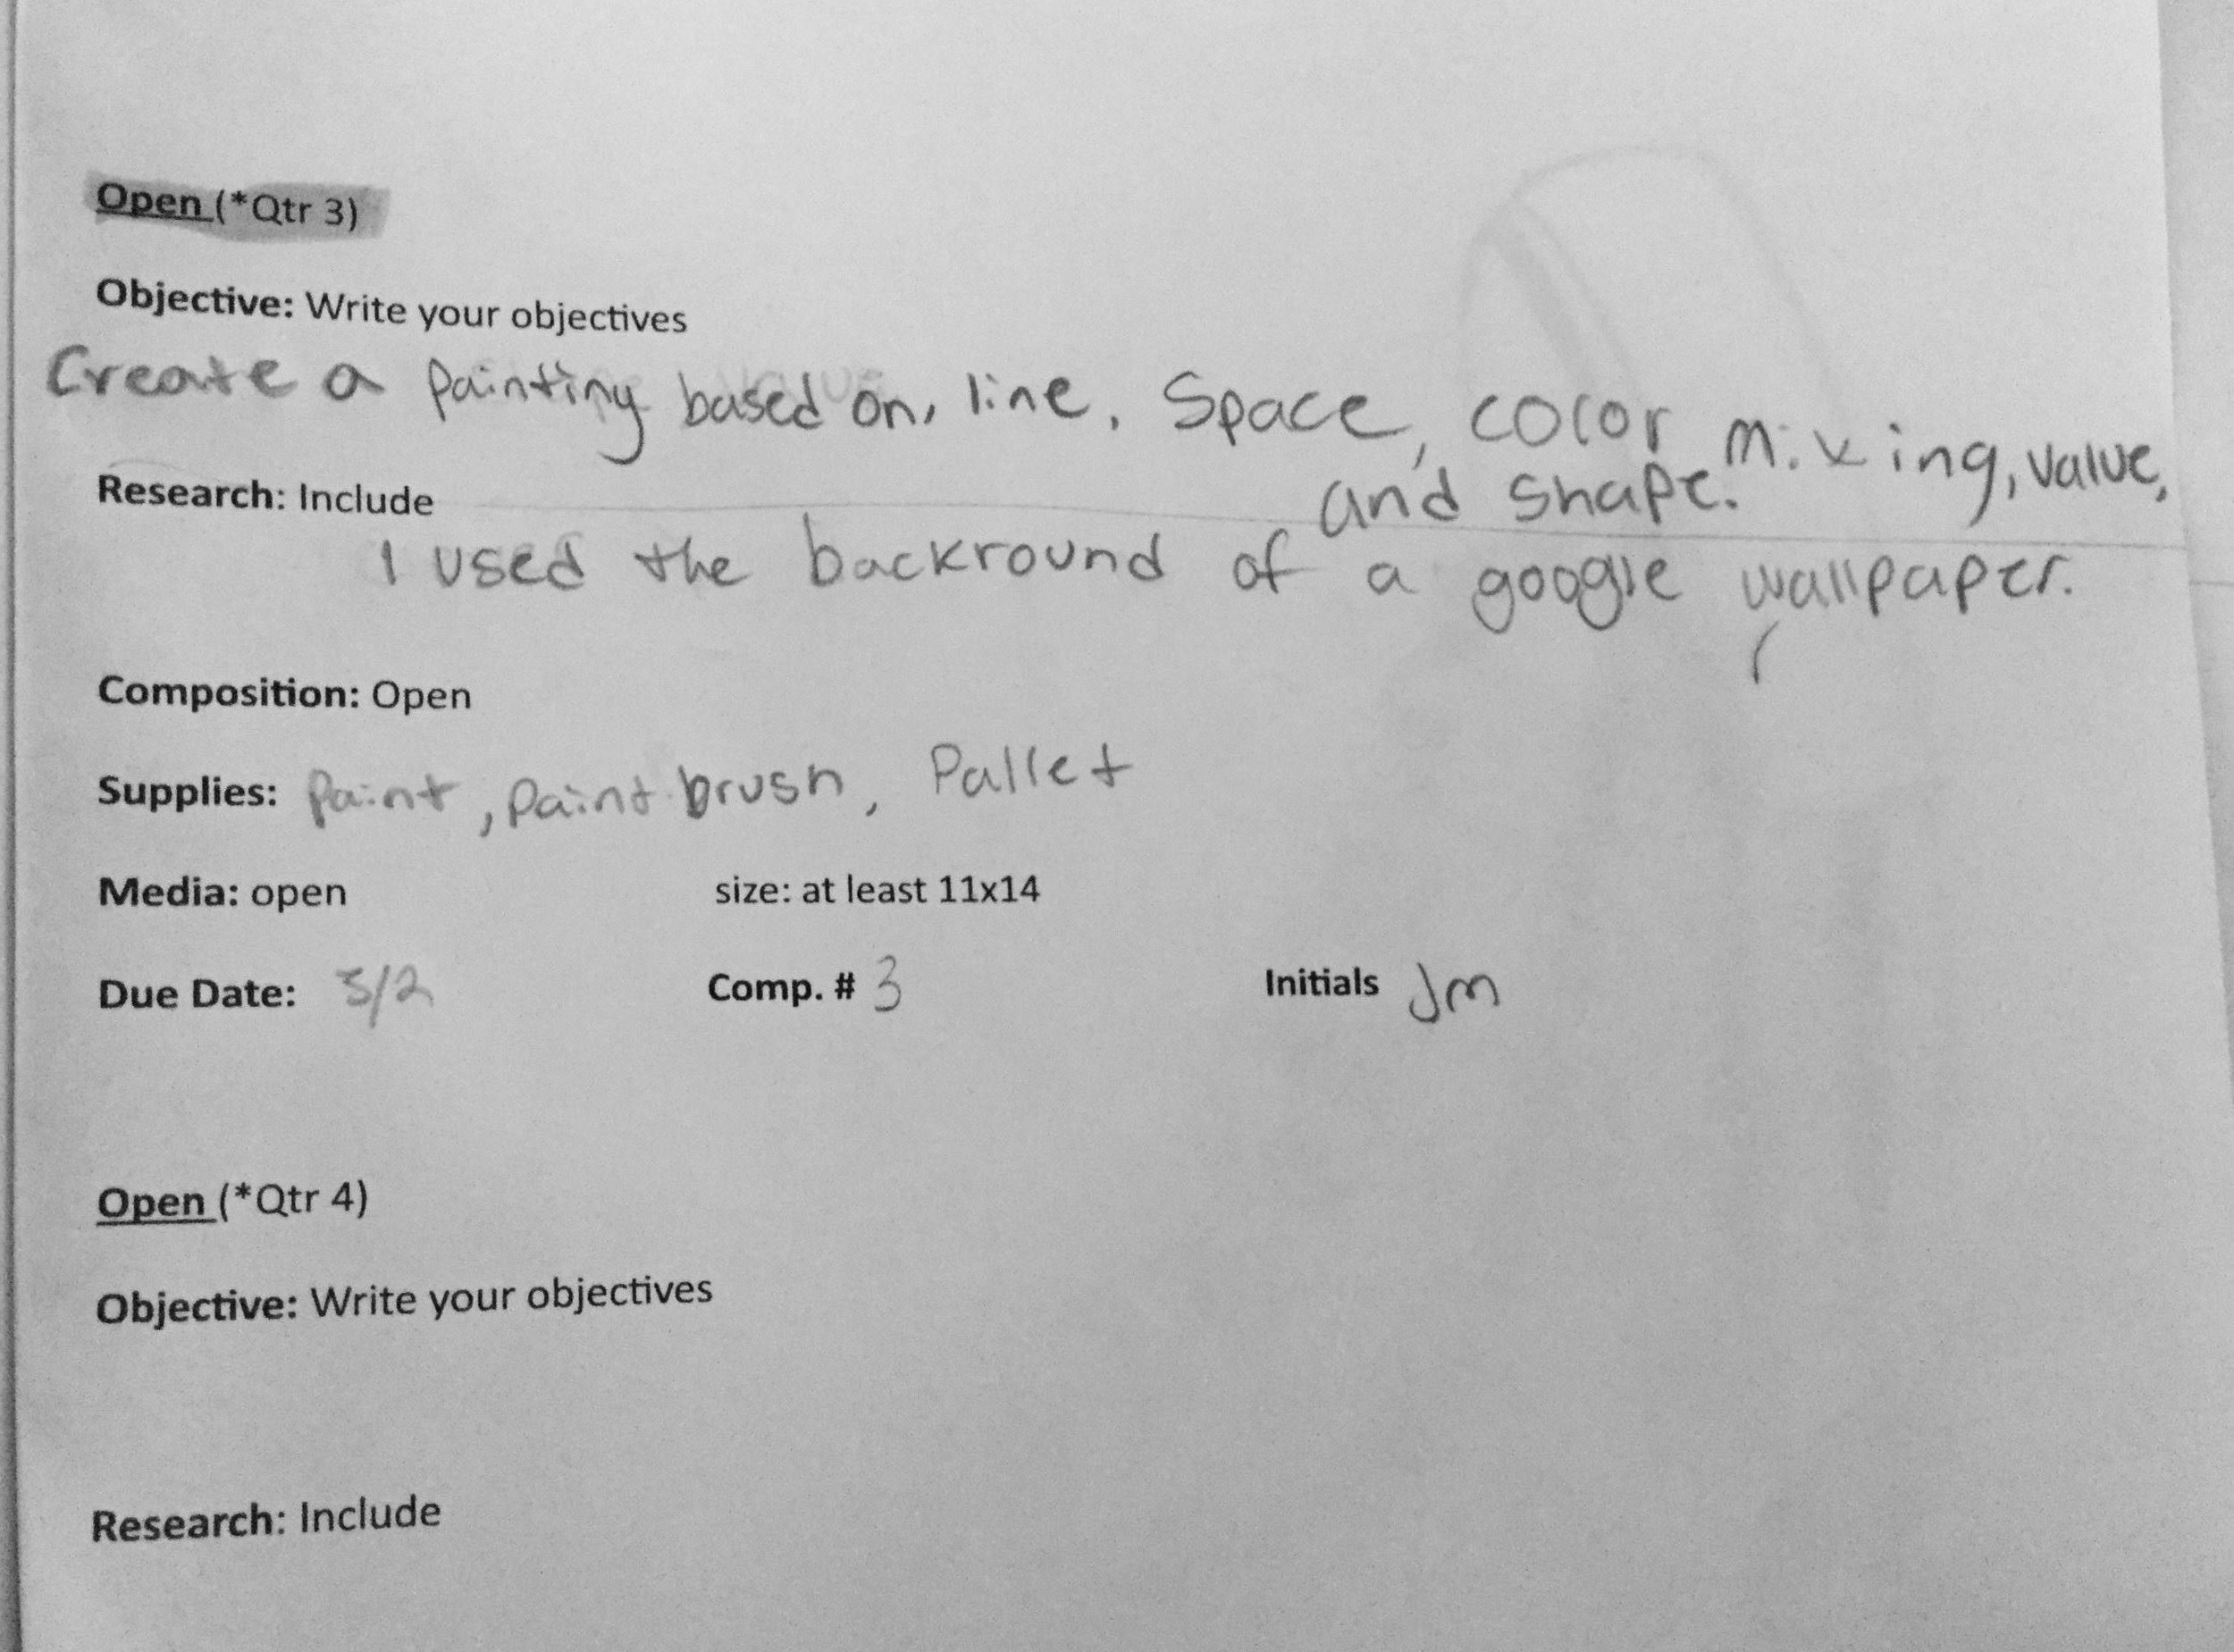 Open (*Qtr 3)
Objective: Write your objectives
Create a painting based on, line, Space, color mixing, value,
and shape.
Research: Include
I used the backround of a google wallpaper.
Composition: Open
Supplies: Paint, paint brush, Pallet
Media: open size: at least 11x14
Due Date: 3/2 Comp. # 3 Initials Jm
Open (*Qtr 4)
Objective: Write your objectives
Research: Include